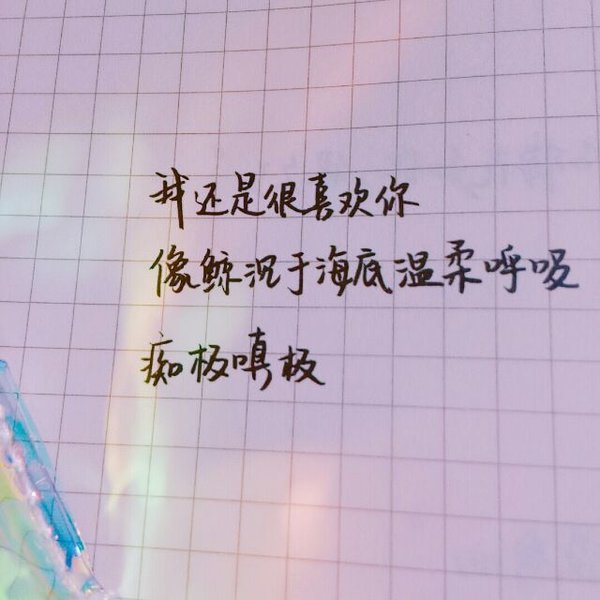 我还是很喜欢你
像鲸沉于海底温柔呼吸
痴极嗔极